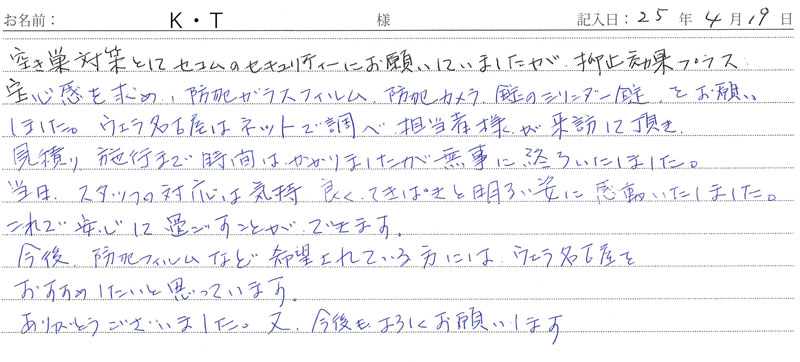 お名前: K・T 様 記入日: 25年4月19日
空き巣対策としてセコムのセキュリティーにお願いしていましたが、抑止効果プラス
安心感を求め、防犯ガラスフィルム、防犯カメラ、錠のシリンダー錠、をお願い
しました。ウェラ名古屋はネットで調べ、担当者様が来訪して頂き、
見積り、施行まで時間はかかりましたが無事に終了いたしました。
当日、スタッフの対応は気持良く、てきぱきと明るい姿に感動いたしました。
これで安心して過ごすことができます。
今後、防犯フィルムなど希望されている方には、ウェラ名古屋を
おすすめしたいと思っています。
ありがとうございました。又、今後もよろしくお願いします